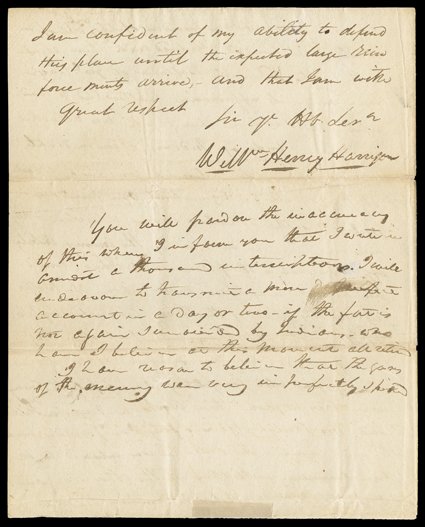 I am confident of my ability to defend
this place until the expected large rein
force ments arrive, - and that I am with
great respect
Sir Yr Hb Serv
Willm Henry Harrison
You will pardon the inaccuracy
of this when I inform you that I write in
amidst a thousand interruptions. I will
endeavour to transmit a more
account in a day or two - if the fort is
not again invested by Indians, who
have I believe at this moment all retired
I have reason to believe that the guns
of the enemy were very imperfectly spiked